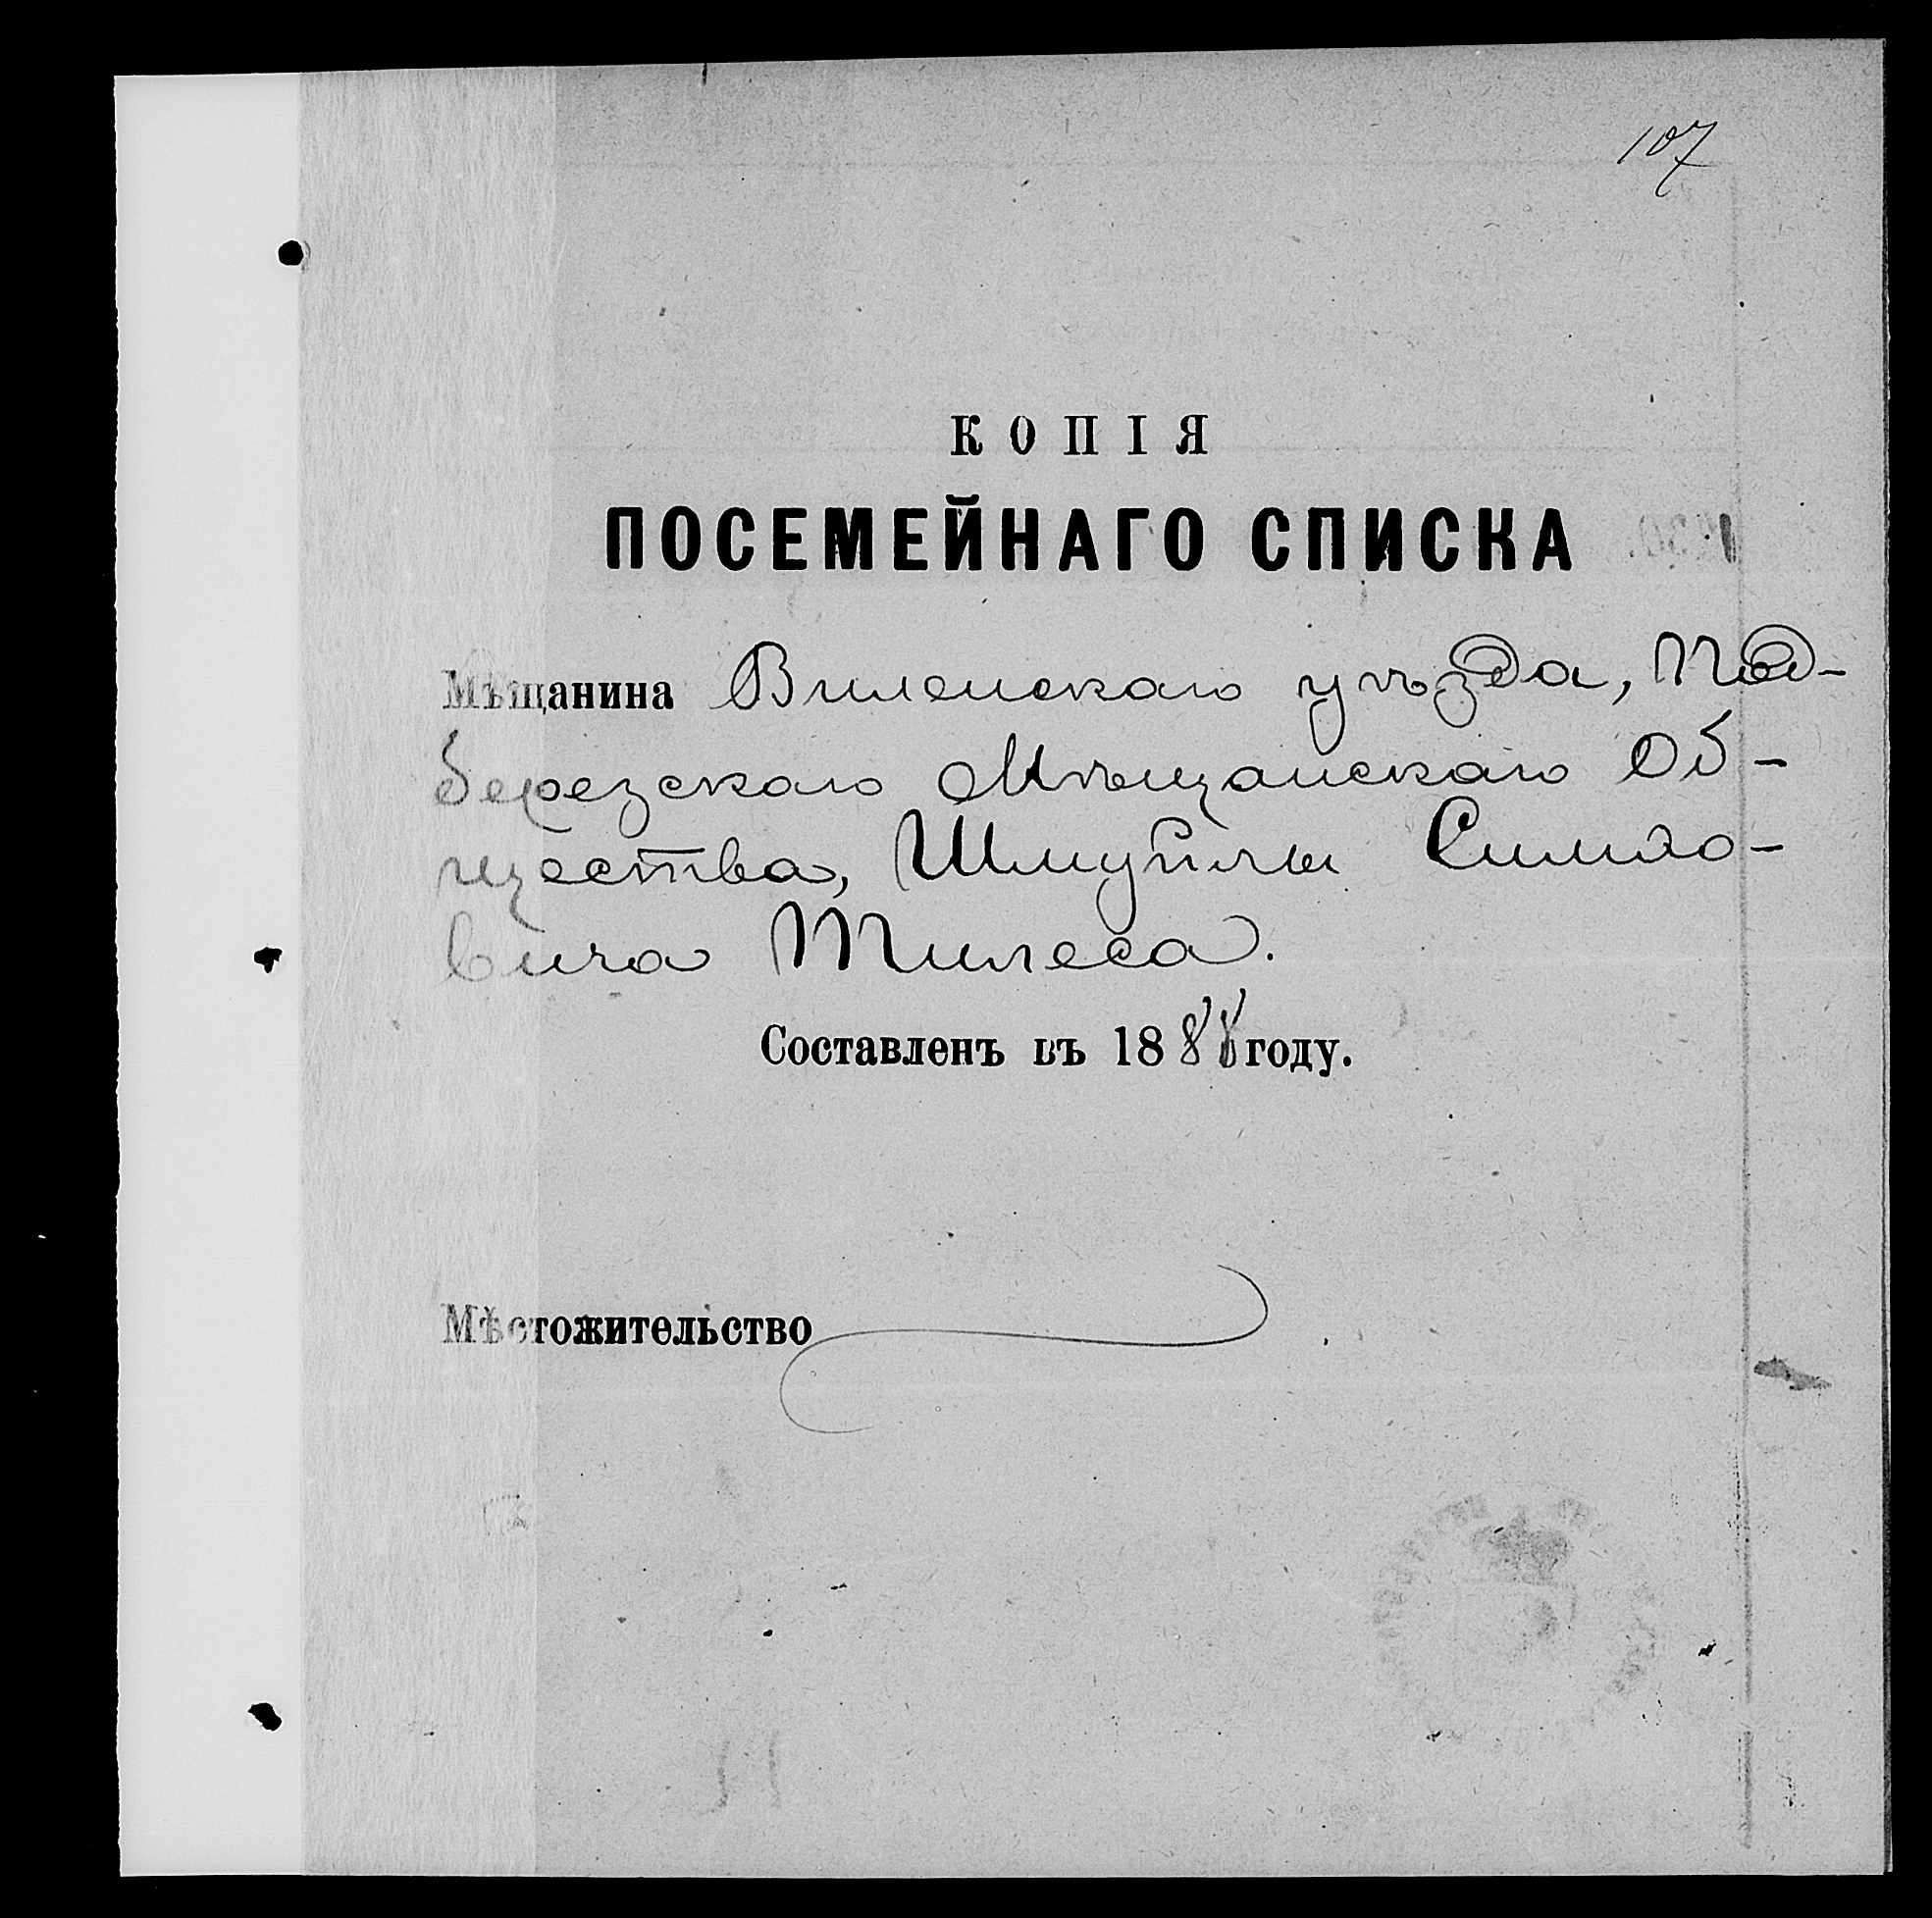 107
КОПІЯ
ПОСЕМЕЙНАГО СПИСКА
Мѣщанина Виленскаго уѣзда, Под-
березскаго Мѣщанскаго Об-
щества, Шмуйлы
вича Тилеса.
Составленъ въ 1888 году.
Мѣстожительство